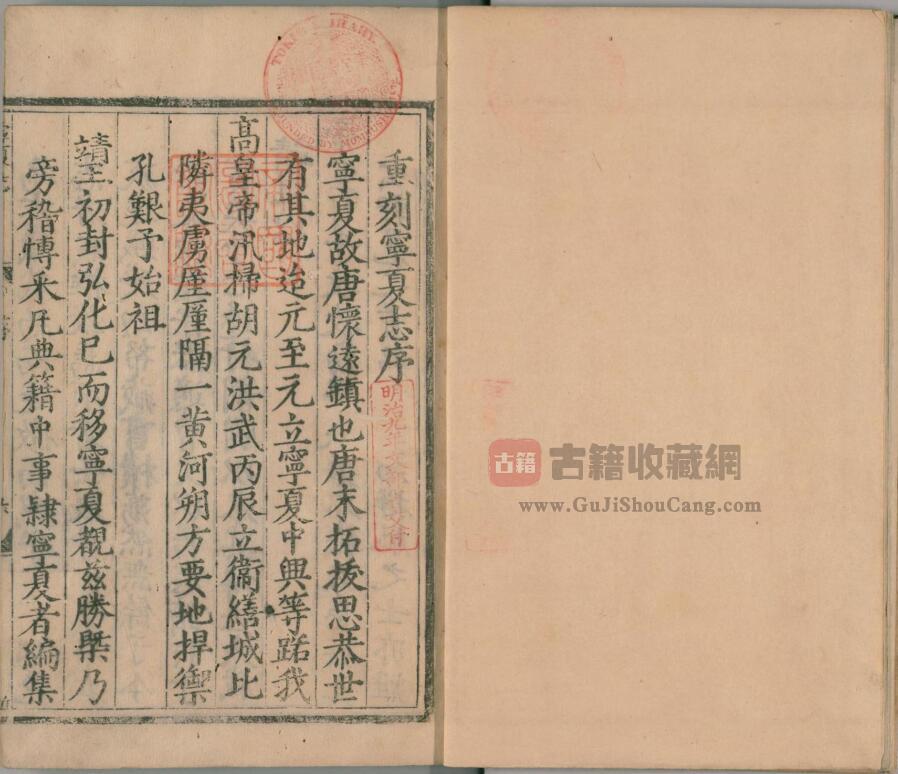 重刻寧夏志序
寧夏故唐懷遠鎮也唐末拓拔思恭世
有其地迨元至元立寧夏中興等路我
高皇帝汛掃胡元洪武丙辰立衞繕城比
隣夷虜厪厪隔一黄河朔方要地捍禦
孔艱予始祖
靖王初封弘化已而移寧夏覩兹勝槩乃
旁稽愽采凡典籍中事隷寧夏者編集
TOKIO LIBRARY
FOUNDED BY MOMBUSHO
明治九年文部省交付
古籍
古籍收藏網
www.GuJiShouCang.com